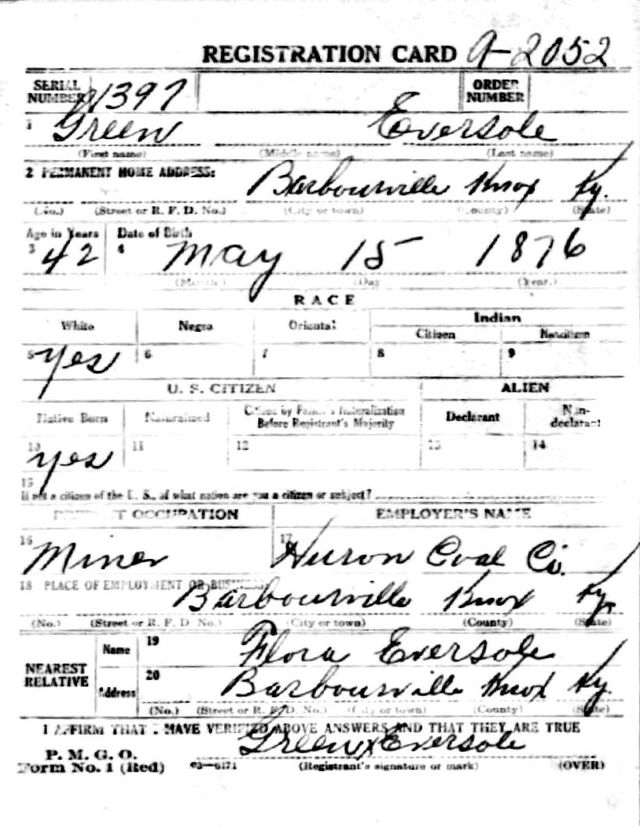 REGISTRATION CARD A-2052
SERIAL NUMBER 1397 ORDER NUMBER
1 Green Eversole
(First name) (Middle name) (Last name)
2 PERMANENT HOME ADDRESS:
Barbourville Knox Ky.
(No.) (Street or R. F. D. No.) (City or town) (County) (State)
Age in Years Date of Birth
3 42 4 May 15 1876
(Month) (Day) (Year.)
RACE
White Negro Oriental Indian
Citizen Noncitizen
5 Yes 6 7 8 9
U. S. CITIZEN ALIEN
Native Born Naturalized Citizen by Father's Naturalization Before Registrant's Majority Declarant Non-declarant
10 Yes 11 12 13 14
15
If not a citizen of the U. S., of what nation are you a citizen or subject?
PRESENT OCCUPATION EMPLOYER'S NAME
16 Miner 17 Huron Coal Co.
18 PLACE OF EMPLOYMENT OR BUSINESS
Barbourville Knox Ky.
(No.) (Street or R. F. D. No.) (City or town) (County) (State)
NEAREST RELATIVE Name 19 Flora Eversole
Address 20 Barbourville Knox Ky.
(No.) (Street or R. F. D. No.) (City or town) (County) (State)
I AFFIRM THAT I HAVE VERIFIED ABOVE ANSWERS AND THAT THEY ARE TRUE
P. M. G. O.
Form No. 1 (Red) 03—6171 Green x Eversole
(Registrant's signature or mark) (OVER)